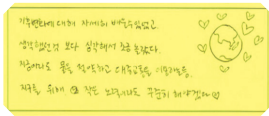 기후변화에 대해 자세히 배울수 있었고
생각했던것 보다 심각해서 조금 놀랐다.
지금이라도 물을 절약하고 대중교통을 이용하는등
지구를 위해 작은 노력이라도 꾸준히 해야겠다